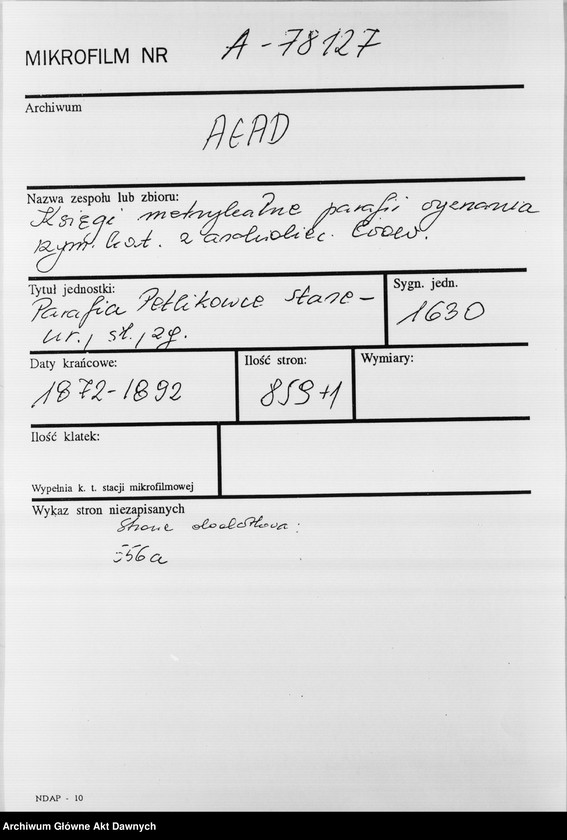 MIKROFILM NR A-78127
Archiwum
AGAD
Nazwa zespołu lub zbioru:
Księgi metrykalne parafii wyznania
rzym. kat. z archidiec. Lwow.
Tytuł jednostki:
Parafia Petlikowce Stare -
ur., śl., zg.
Sygn. jedn.
1630
Daty krańcowe:
1872-1892
Ilość stron:
859+1
Wymiary:
Ilość klatek:
Wypełnia k. t. stacji mikrofilmowej
Wykaz stron niezapisanych
Strona dodatkowa:
556a
NDAP - 10
Archiwum Główne Akt Dawnych